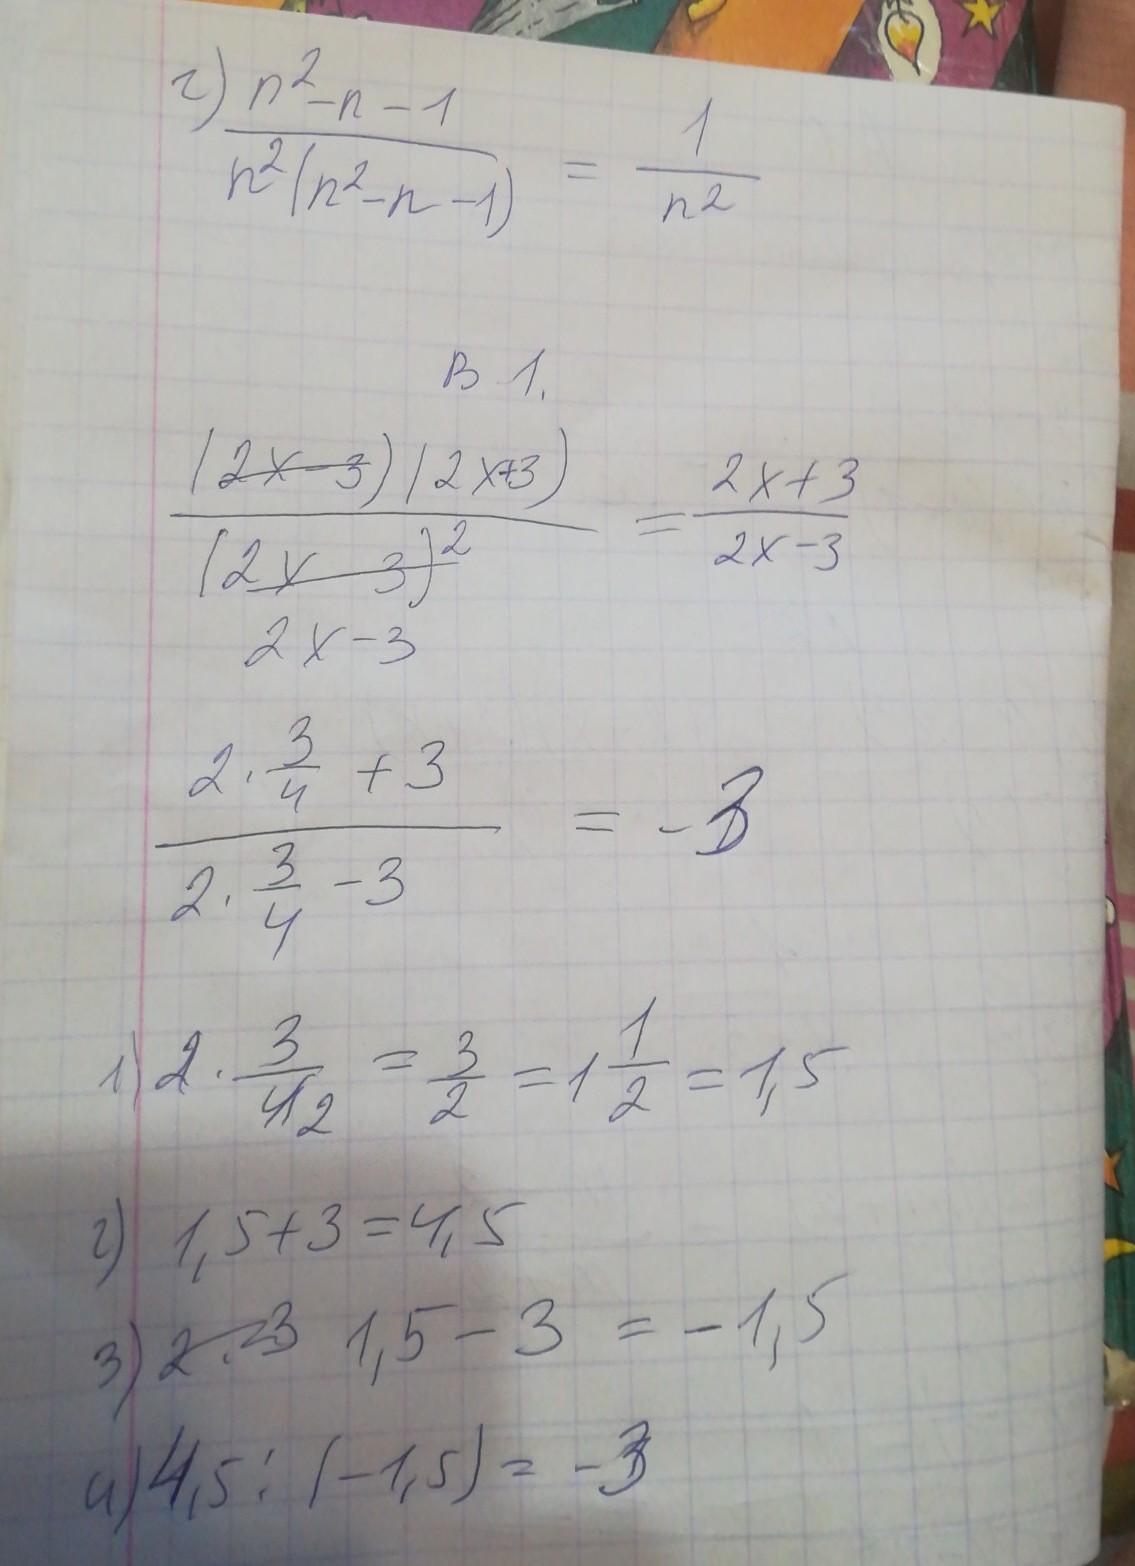 г) n²-n-1 / n²(n²-n-1) = 1 / n²
В 1.
(2x-3)(2x+3) / (2x-3)² = 2x+3 / 2x-3
2x-3
2·3/4 + 3 / 2·3/4 - 3 = -3
1) 2·3/4 2 = 3/2 = 1 1/2 = 1,5
2) 1,5+3=4,5
3) 2·3 1,5-3 = -1,5
4) 4,5:(-1,5)= -3